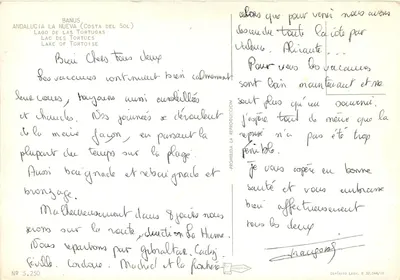 BANUS
ANDALUCIA LA NUEVA (COSTA DEL SOL)
LAGO DE LAS TORTUGAS
LAC DES TORTUES
LAKE OF TORTOISE
Bien Chers tous deux
Les vacances continuent bien calmement
leur cours, toujours aussi ensoleillées
et chaudes. Nos journées se déroulent
de la même façon, en passant la
plupart du temps sur la plage.
Aussi baignade et rebaignade et
bronzage.
Malheureusement dans 8 jours nous
serons sur la route, direction Le Hurne.
Nous repartons par Gibraltar, Cadiz,
Séville, Cordoue, Madrid et la frontière
alors que pour venir nous avions
descendu toute la côte par
Valence, Alicante...
Pour vous les vacances
sont bien maintenant et ne
sont plus qu'un souvenir.
J'espère tout de même que la
reprise n'a pas été trop
pénible.
Je vous espère en bonne
santé et vous embrasse
bien affectueusement
tous les deux
Françoise
PROHIBIDA LA REPRODUCCION
Nº S. 250